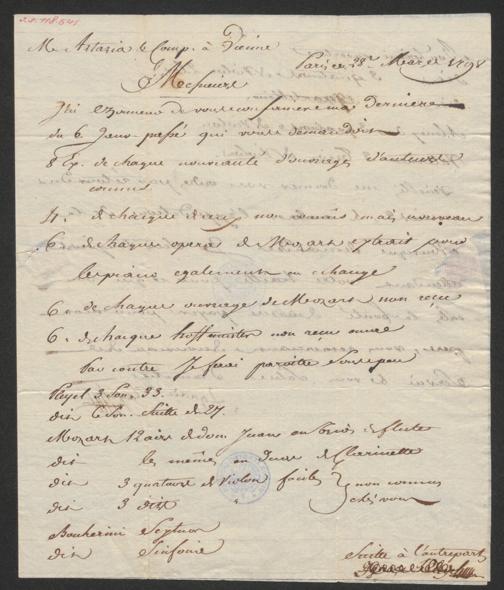 M. Artaria & Comp. à Vienne
Paris ce 28 Mars 1798
Messieurs
J'ai l'honneur de vous confirmer ma dernière
du 6 Janv. passé qui vous demandoit
8 Ex. de chaque nouveauté d'ouvrages d'auteurs
connus
4. de chaque de ceux non connus mais nouveau
6 de chaque opera de Mozart extrait pour
le piano egalement en echange
6 de chaque ouvrage de Mozart non reçu
6. de chaque hoffmeister non reçu encore
Par contre Je ferai paroitre sous peu
Pleyel 3 Son. 33.
dit 6 Son. Suitte de 27.
Mozart 12 airs de dom Juan en trios de flute
dit les mêmes en duos de Clarinette
dit 3 quatuors de violon faciles } non connus
dit 3 dito chés vous
Boccherini Septuor
dit Sinfonie
Suitte à l'autre part